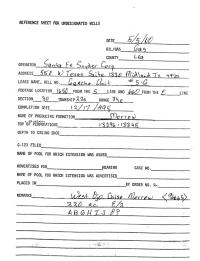 REFERENCE SHEET FOR UNDESIGNATED WELLS
DATE 5/3/00
OIL/GAS Gas
COUNTY Lea
OPERATOR Santa Fe Snyder Corp.
ADDRESS 550 W Texas Suite 1330 Midland Tx 79701
LEASE NAME, WELL NO. Gaucho Unit #5-G
FOOTAGE LOCATION 1650 FROM THE S LINE AND 660 FROM THE E LINE
SECTION TOWNSHIP 22S RANGE 34E
COMPLETION DATE 12/17/99
NAME OF PRODUCING FORMATION Morrow
TOP OF PERFORATIONS
DEPTH TO CASING SHOE
C-123 FILED
NAME OF POOL FOR WHICH EXTENSION WAS ASKED
ADVERTISED FOR HEARING CASE NO.
NAME OF POOL FOR WHICH EXTENSION WAS ADVERTISED
PLACED IN BY ORDER NO. R-
REMARKS Morrow
320 ac E/2
A B G H I J P